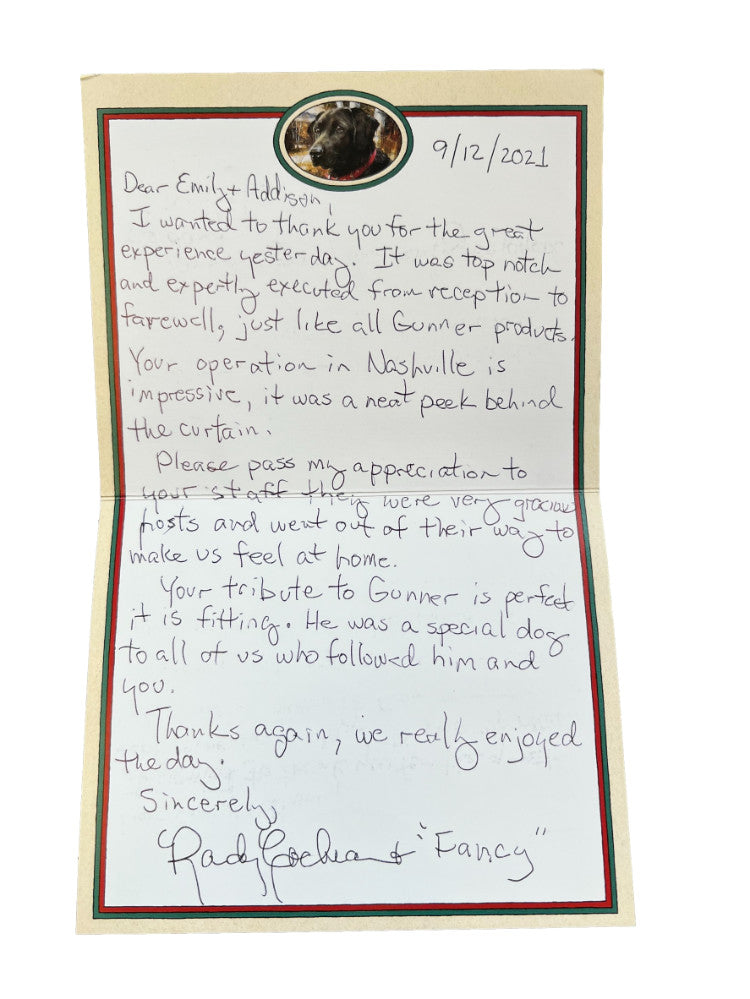 9/12/2021
Dear Emily + Addison,
I wanted to thank you for the great
experience yesterday. It was top notch
and expertly executed from reception to
farewell, just like all Gunner products.
Your operation in Nashville is
impressive, it was a neat peek behind
the curtain.
Please pass my appreciation to
your staff they were very gracious
hosts and went out of their way to
make us feel at home.
Your tribute to Gunner is perfect
it is fitting. He was a special dog
to all of us who followed him and
you.
Thanks again, we really enjoyed
the day.
Sincerely,
+ "Fancy"